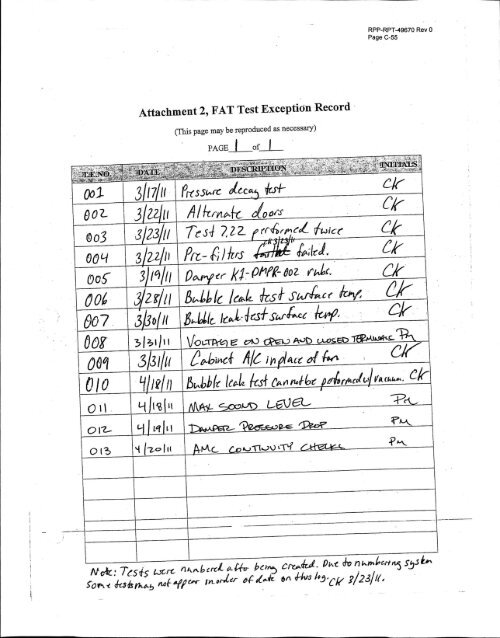 RPP-RPT-49670 Rev 0
Page C-55
Attachment 2, FAT Test Exception Record
(This page may be reproduced as necessary)
PAGE 1 of 1
T.E. NO. DATE DESCRIPTION INITIALS
001 3/17/11 Pressure decay test CK
002 3/22/11 Alternate doors CK
003 3/23/11 Test 7.22 performed twice CK
004 3/22/11 Pre-filters CK 3/23/11 failed. CK
005 3/19/11 Damper K1-DMPR-002 rubs. CK
006 3/28/11 Bubble leak test surface temp. CK
007 3/30/11 Bubble leak test surface temp. CK
008 3/31/11 VOLTAGE ON OPEN AND CLOSED TERMINALS PM
009 3/31/11 Cabinet A/C in place of fan CK
010 4/18/11 Bubble leak test cannot be performed w/ vacuum. CK
011 4/18/11 MAX SOUND LEVEL PM
012 4/19/11 DAMPER PRESSURE DROP PM
013 4/20/11 AMC CONTINUITY CHECKS PM
Note: Tests were numbered after being created. Due to numbering system
some tests may not appear in order of date on this log. CK 3/23/11.